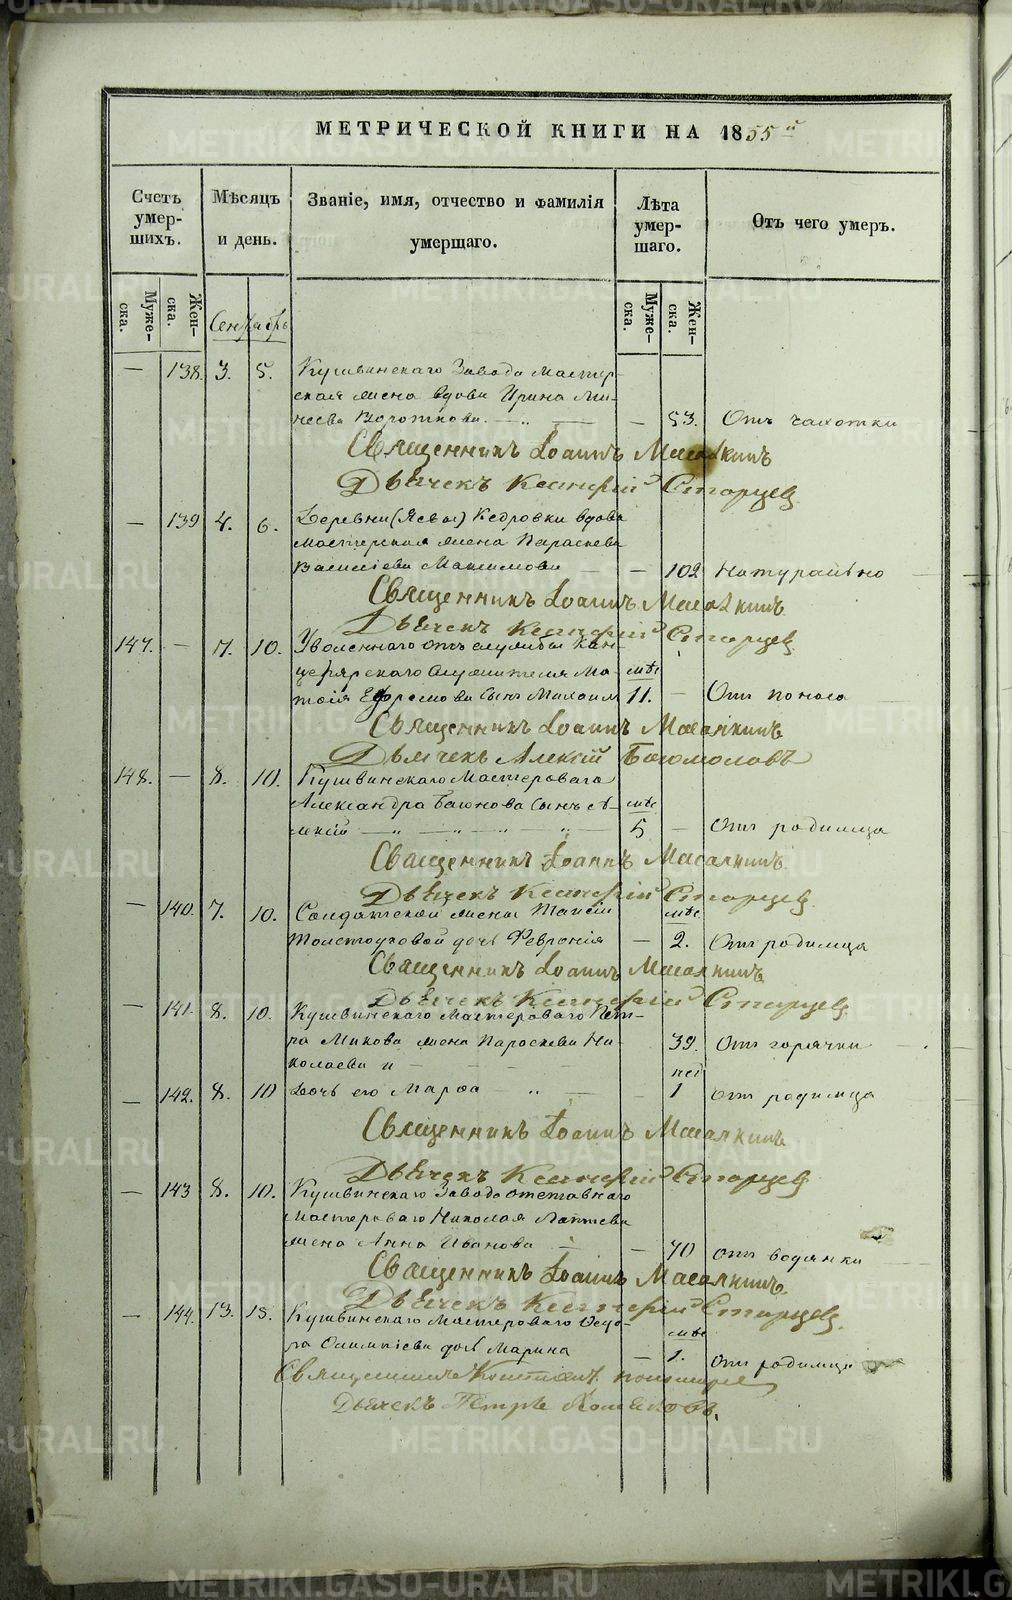 METRIKI.GASO-URAL.RU
МЕТРИЧЕСКОЙ КНИГИ НА 1855й
Счетъ умер- шихъ.
Мѣсяцъ и день.
Званіе, имя, отчество и фамилія умершаго.
Лѣта умер- шаго.
Отъ чего умеръ.
Муже- ска.
Жен- ска.
Сентябрь
Муже- ска.
Жен- ска.
— 138. 3. 5. Кушвинскаго Завода Мастер-
ская жена вдова Ирина Ми-
неева — 53. Отъ чахотки
Священникъ Іоаннъ Масалкинъ
Дьячекъ Старцев
— 139 4. 6. Деревни Кедровки вдова
мастерская жена Параскева
Василіева Максимова — 102 Натурально
Священникъ Іоаннъ Масалкинъ
Дьячекъ Старцев
147. — 7. 10. Уволеннаго отъ службы Кан-
целярскаго Служителя Ма- мѣс
Ефремова Сынъ Михаил 11. — Отъ поноса
Священникъ Іоаннъ Масалкинъ
Дьячекъ Алексій Богомоловъ
148. — 8. 10. Кушвинскаго Мастероваго
Александра Сынъ А- мѣс
лексій 5 — Отъ родимца
Священникъ Іоаннъ Масалкинъ
Дьячекъ Старцев
— 140. 7. 10. Солдатской жены Таисіи мѣс
дочь Феврония — 2. Отъ родимца
Священникъ Іоаннъ Масалкинъ
Дьячекъ Старцев
— 141. 8. 10. Кушвинскаго Мастероваго Пет-
ра жена Параскева Ни-
колаева и 39. Отъ горячки
— 142. 8. 10 Дочь его Марфа 1 отъ родимца
Священникъ Іоаннъ Масалкинъ
Дьячекъ Старцев
— 143 8. 10. Кушвинскаго Завода отставнаго
Мастероваго Николая Лаптева
жена Анна Иванова — 70 отъ водянки
Священникъ Іоаннъ Масалкинъ
Дьячекъ Старцев
— 144. 13. 15. Кушвинскаго Мастероваго Федо- мѣс
ра дочь Марина — 1. отъ родимца
Священникъ
Дьячекъ Петръ